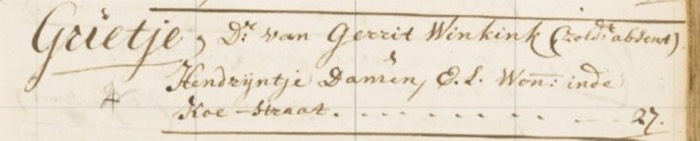 Grietje, Dr: van Gerrit Winkink (zold.t absent)
Hendrijntje Damen, E.L. Won: inde
Koe-straat. . . . . . . . . 27.